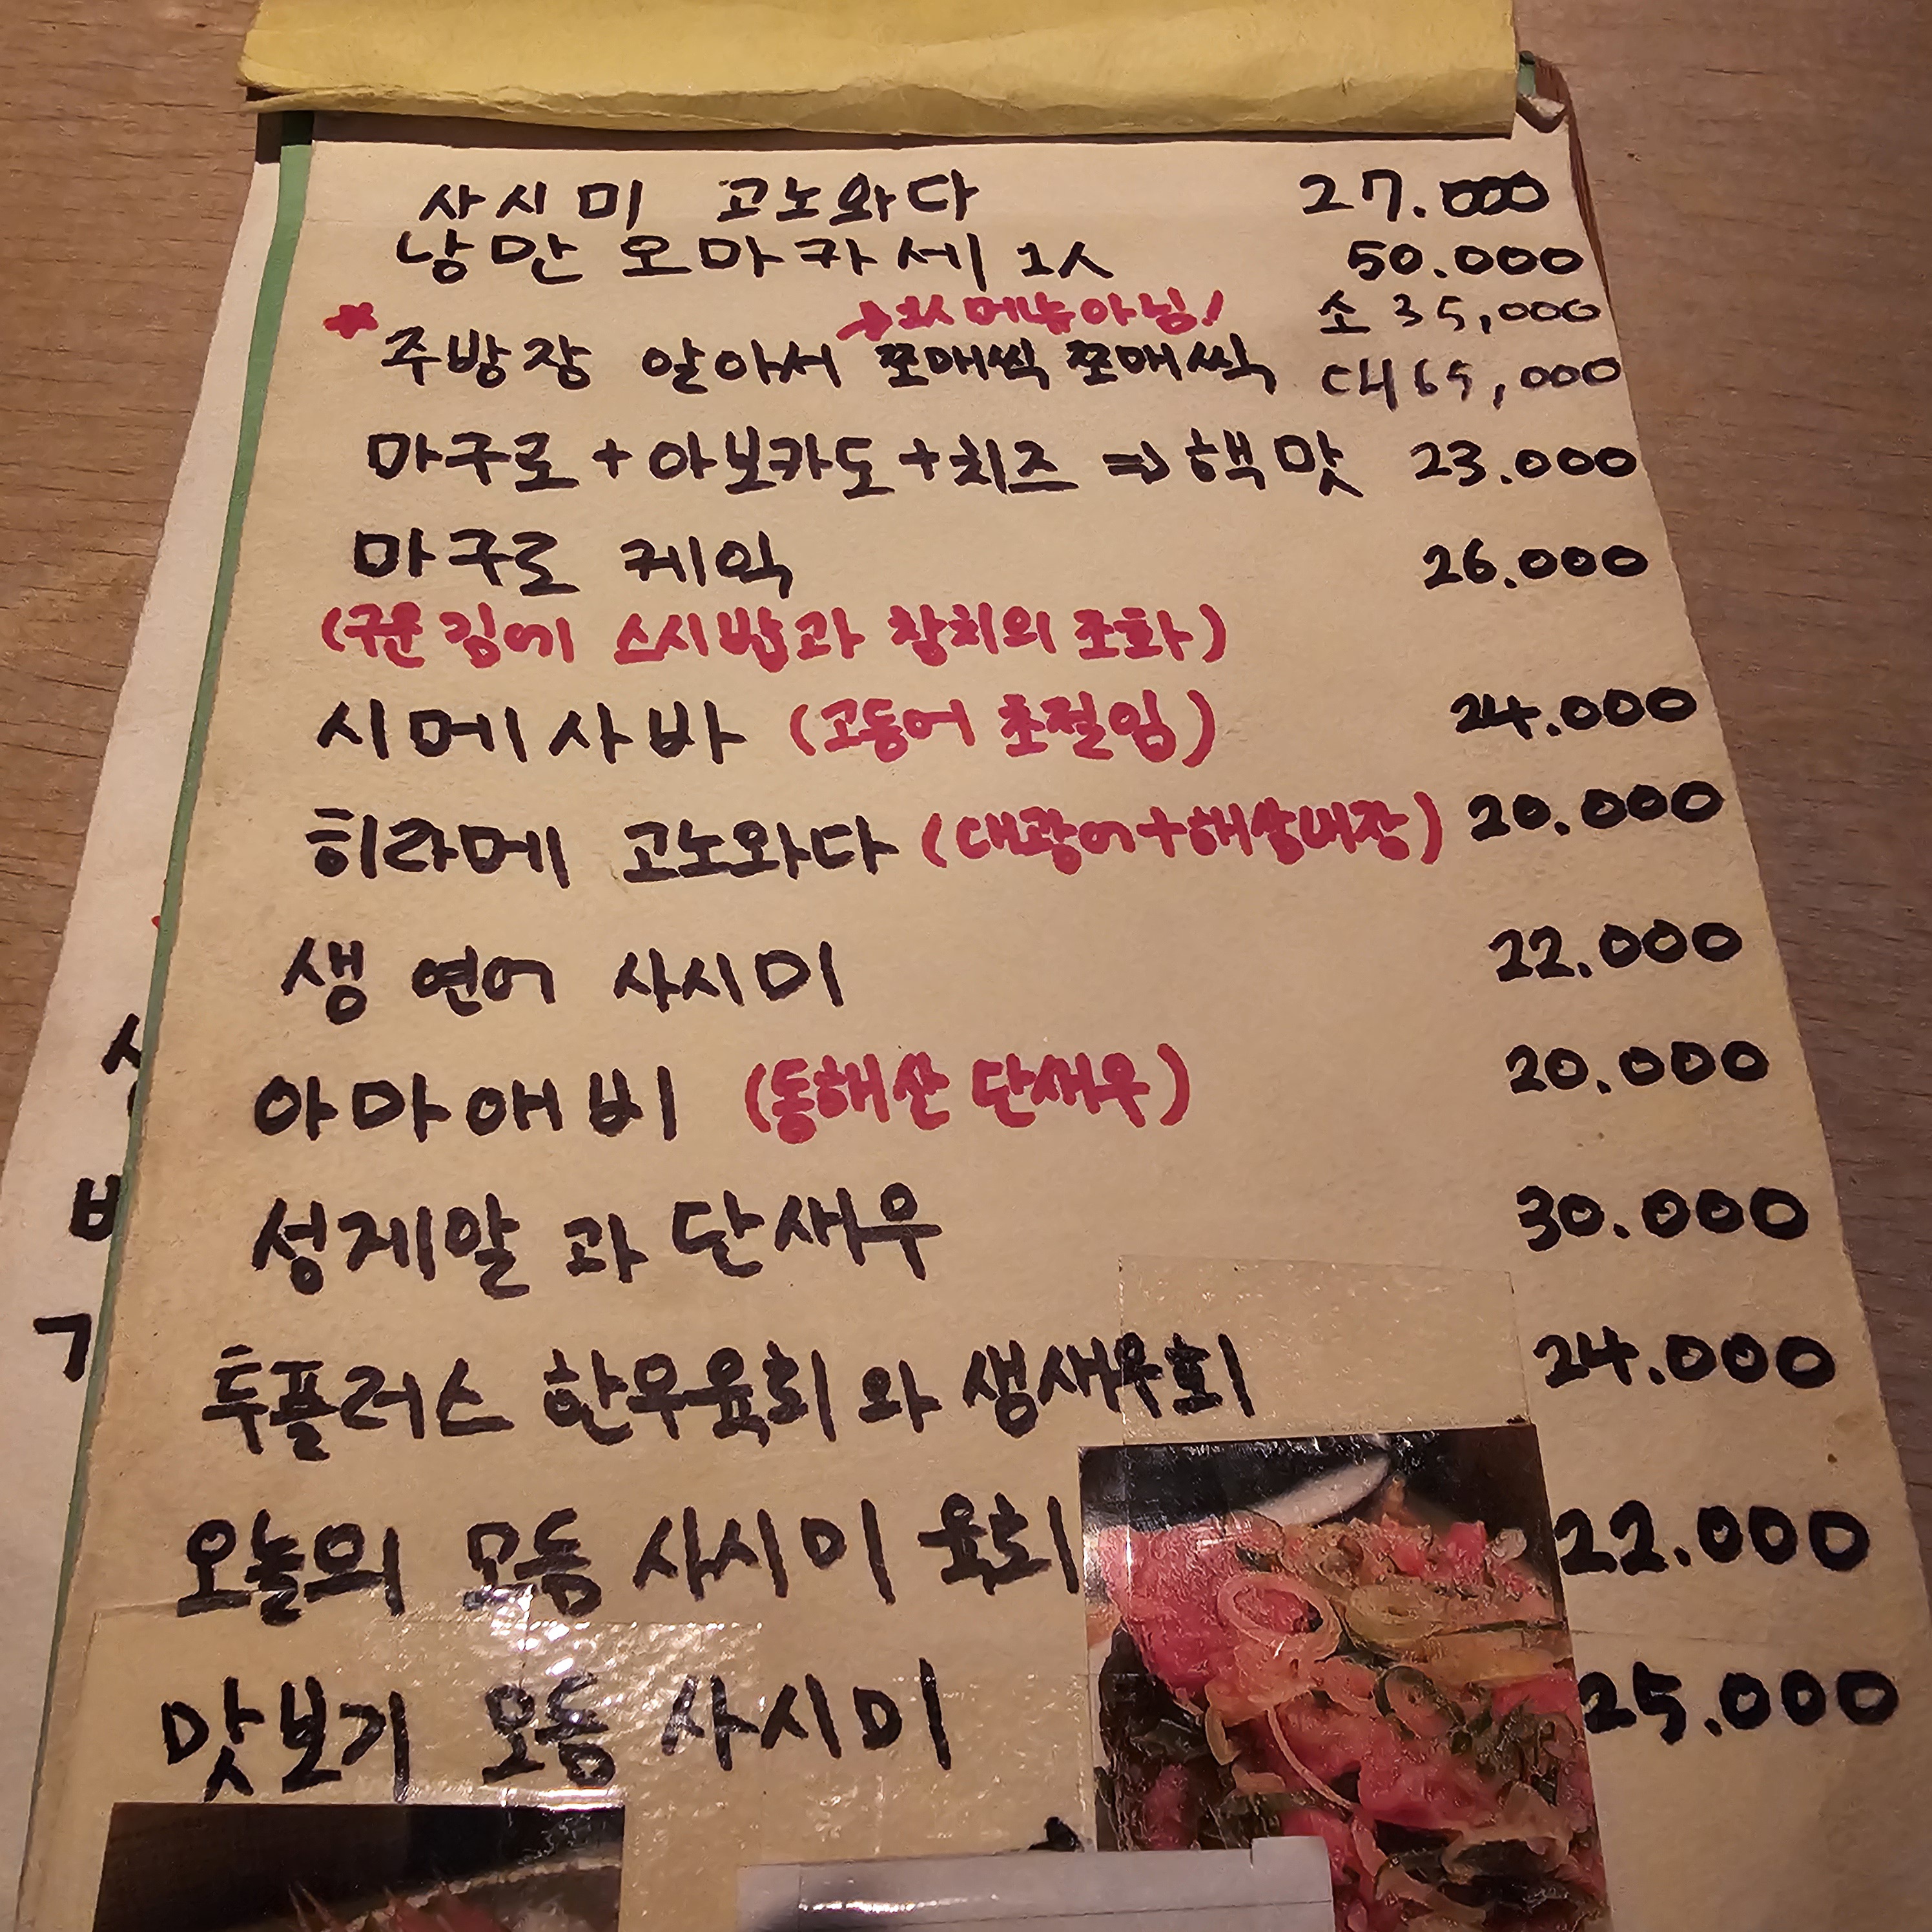 사시미 고노와다 27.000
낭만 오마카세 1人 50.000
→1人 메뉴 아님! 소 35,000
* 주방장 알아서 쪼매씩 쪼매씩 대 65,000
마구로+아보카도+치즈 ⇒ 핵맛 23.000
마구로 케익 26.000
(구운 김에 스시밥과 참치의 조화)
시메사바 (고등어 초절임) 24.000
히라메 고노와다 (대광어+해삼내장) 20.000
생 연어 사시미 22.000
아마애비 (동해산 단새우) 20.000
성게알 과 단새우 30.000
투플러스 한우육회 와 생새우회 24.000
오늘의 모듬 사시미 육회 22.000
맛보기 모듬 사시미 25.000